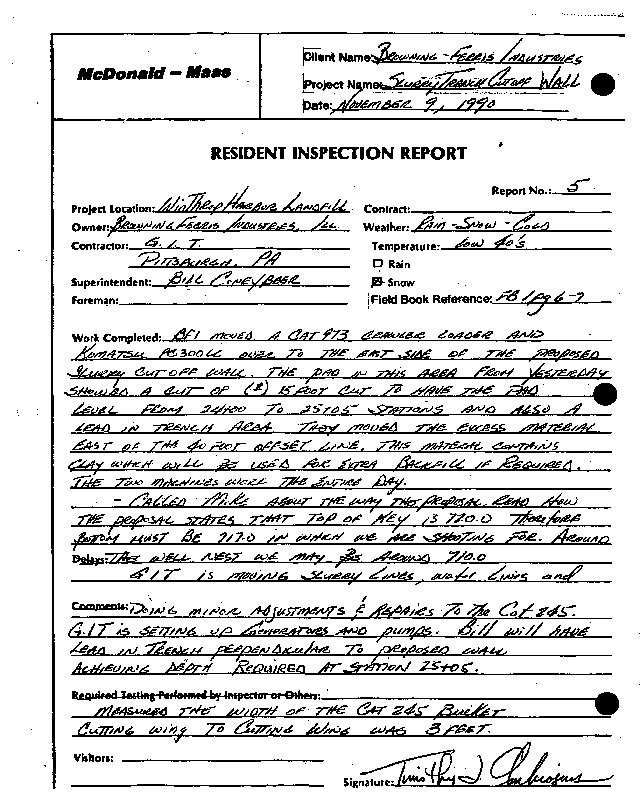 McDonald – Maas
Client Name: Browning - Ferris Industries
Project Name: Slurry Trench Cutoff Wall
Date: November 9, 1990
RESIDENT INSPECTION REPORT
Report No.: 5
Project Location: Winthrop Harbor Landfill
Contract:
Owner: Browning Ferris Industries, Ill
Weather: Rain - Snow - Cold
Contractor: G.I.T.
Temperature: low 40's
Pittsburgh, PA
Rain
Superintendent: Bill
Snow
Foreman:
Field Book Reference: FB 1 pg 6-7
Work Completed: BFI moved a Cat 973 crawler loader and
Komatsu PC300LC over to the east side of the proposed
slurry cut off wall. The pad in this area from yesterday
showed a cut of (±) 15 foot cut to have the pad
level from 24+00 to 25+05 stations and also a
lead in trench area. They moved the excess material
east of the 40 foot offset line. This material contains
clay which will be used for extra backfill if required.
The two machines work the entire day.
- Called Mike about the way the proposal read how
the proposal states that top of key is 720.0 therefore
bottom must be 717.0 in which we are shooting for. Around
Delays: the well nest we may be around 710.0
GIT is moving slurry lines, water lines and
Comments: Doing minor adjustments & repairs to the Cat 245.
G.I.T is setting up generators and pumps. Bill will have
lead in trench perpendicular to proposed wall
achieving depth required at station 25+05.
Required Testing Performed by Inspector or Others:
Measured the width of the Cat 245 bucket
cutting wing to cutting wing was 3 feet.
Visitors:
Signature: Timothy J